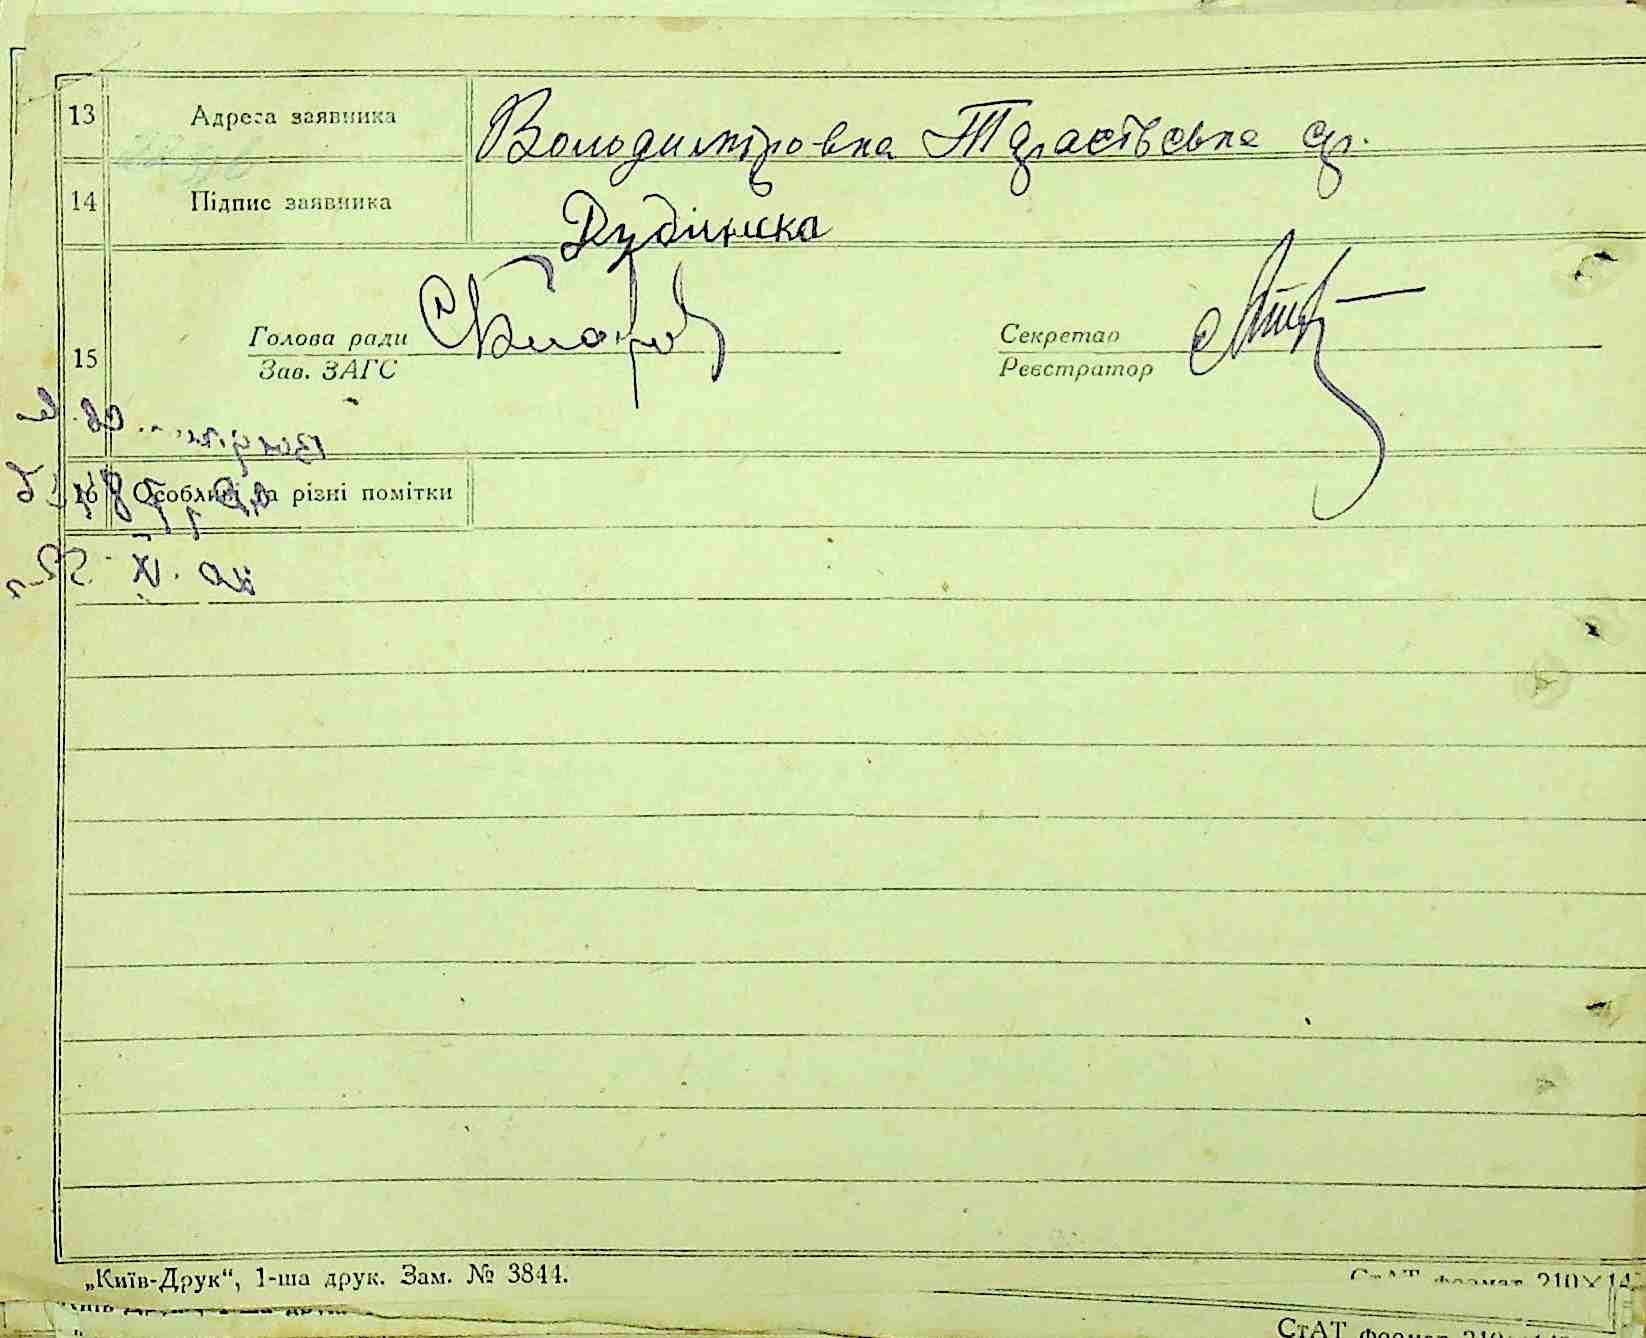 13 Адреса заявника Володимировка Тарастівська ср.
14 Підпис заявника Дубинска
15 Голова ради
Зав. ЗАГС
Секретар
Реєстратор
16 Особливі та різні помітки
„Київ-Друк“, 1-ша друк. Зам. № 3844.
СтАТ формат 210×14
СтАТ формат